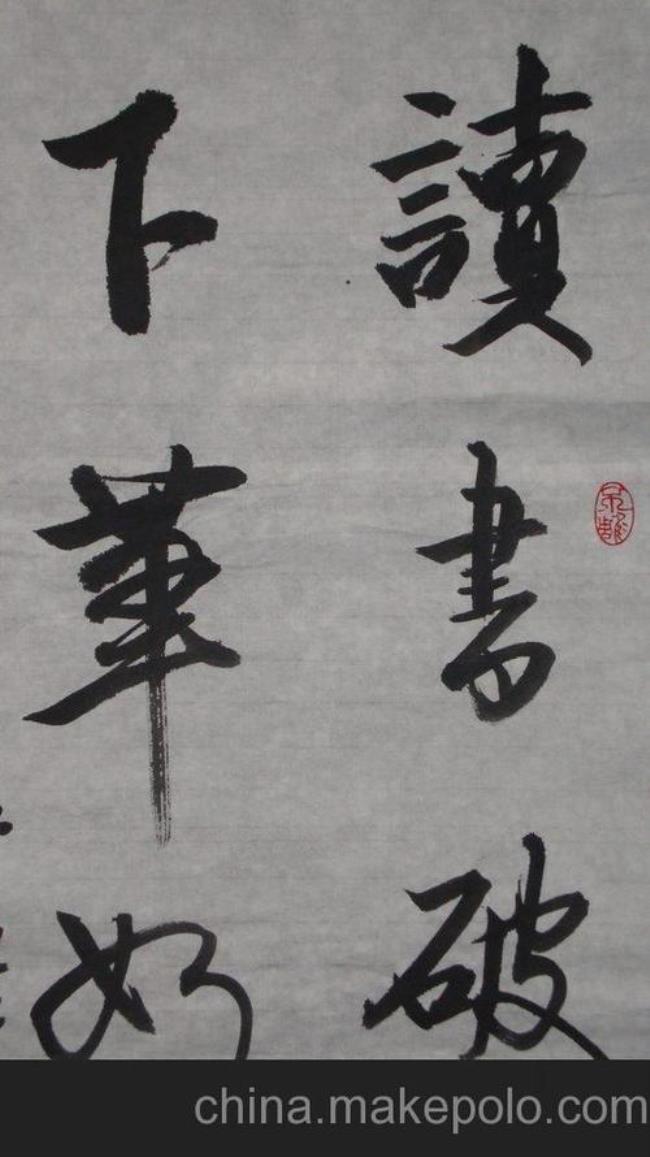 讀書破
下筆如
china.makepolo.com